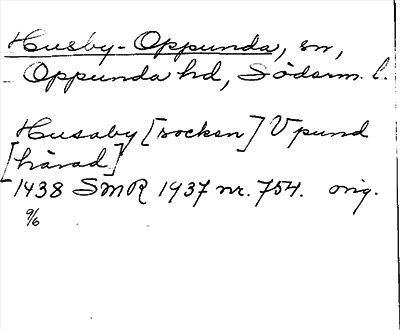 Husby-Oppunda, sn,
Oppunda hd, Söderm. l.
Husaby [socken] Vpund
[härad]
1438 SMR 1937 nr. 754. orig.
%